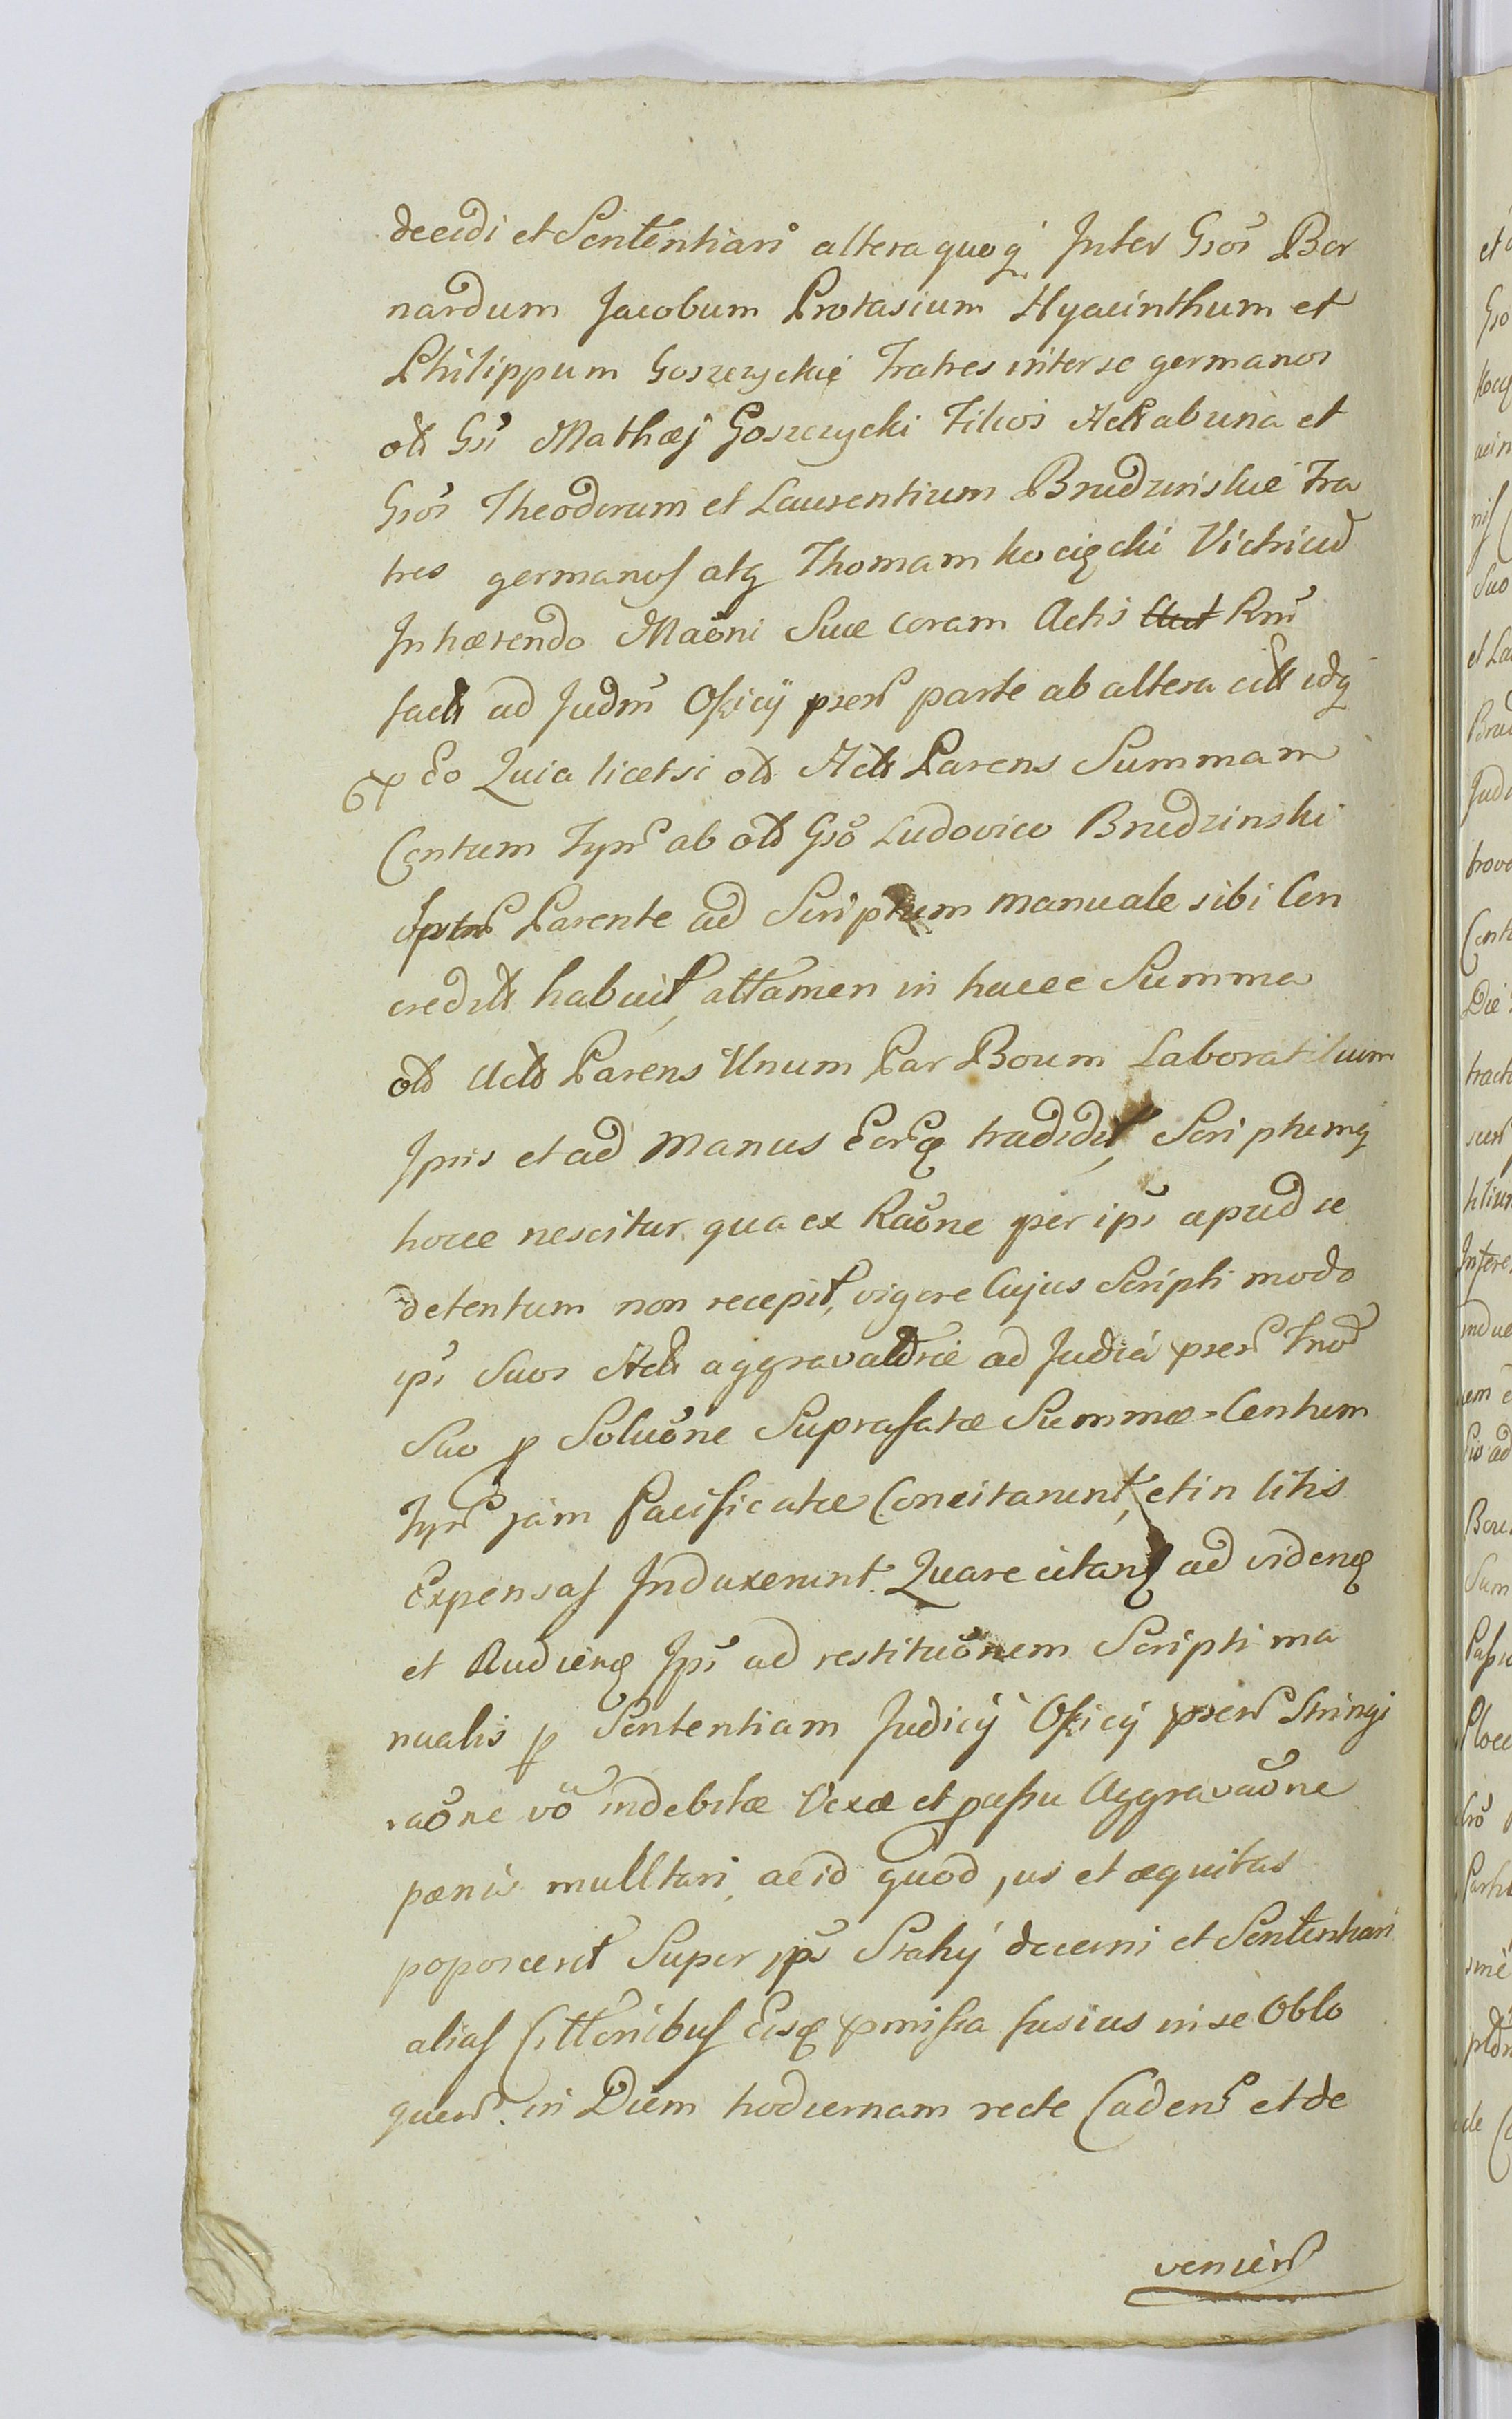 decidi et Sententiari altera quoq Inter Gsos Ber
nardum Jacobum Protasium Hyacinthum et
Philippum Goszczyckie Fratres inter se germanos
olb Gsi Mathæj Goszczycki Filios Acts ab una et
Gsos Theodorum et Laurentium Brudzinskie Fra
tres germanos atq Thomam Kocięcki Victricus
Inhærendo Maõni Suæ coram Actis Rni
facts ad Judm Officij psens parte ab altera citts idq
Eo Quia licet si olb Acts Parens Summam
Centum Fypns ab olb Gso Ludovico Brudzinski
Parente ad Scriptum manuale sibi Con
credits habuit, attamen in hacce Summa
olb Actb Parens Unum Par Boum Laboratilium
Ipsis et ad Manus Eorq tradidit, Scriptumq
hocce nescitur qua ex Raõne per ips apud se
detentum non recepit, vigore Cujus Scripti modo
ips Suos Acts ad Judia psens Tnos
Suo p Soluõne Suprafatæ Summæ Centum
Fypns jam Pacificatæ Concitarunt, et in litis
Expensas Induxerunt. Quare citanq ad videnq
et Audienq Ips ad restituõnem Scripti ma
nualis p Sententiam Judicij Officij psens Stringi
raõne võ indebitæ Vexæ et passu Aggravaõne
pænis mulltari, ac id quod jus et æquitas
poposcerit Super ips Statuj decerni et Sententiari
alias Cittõnibus Eisq pmissa fusius in se Oblo
quens. in Diem hodiernam recte Cadens et de
veniens